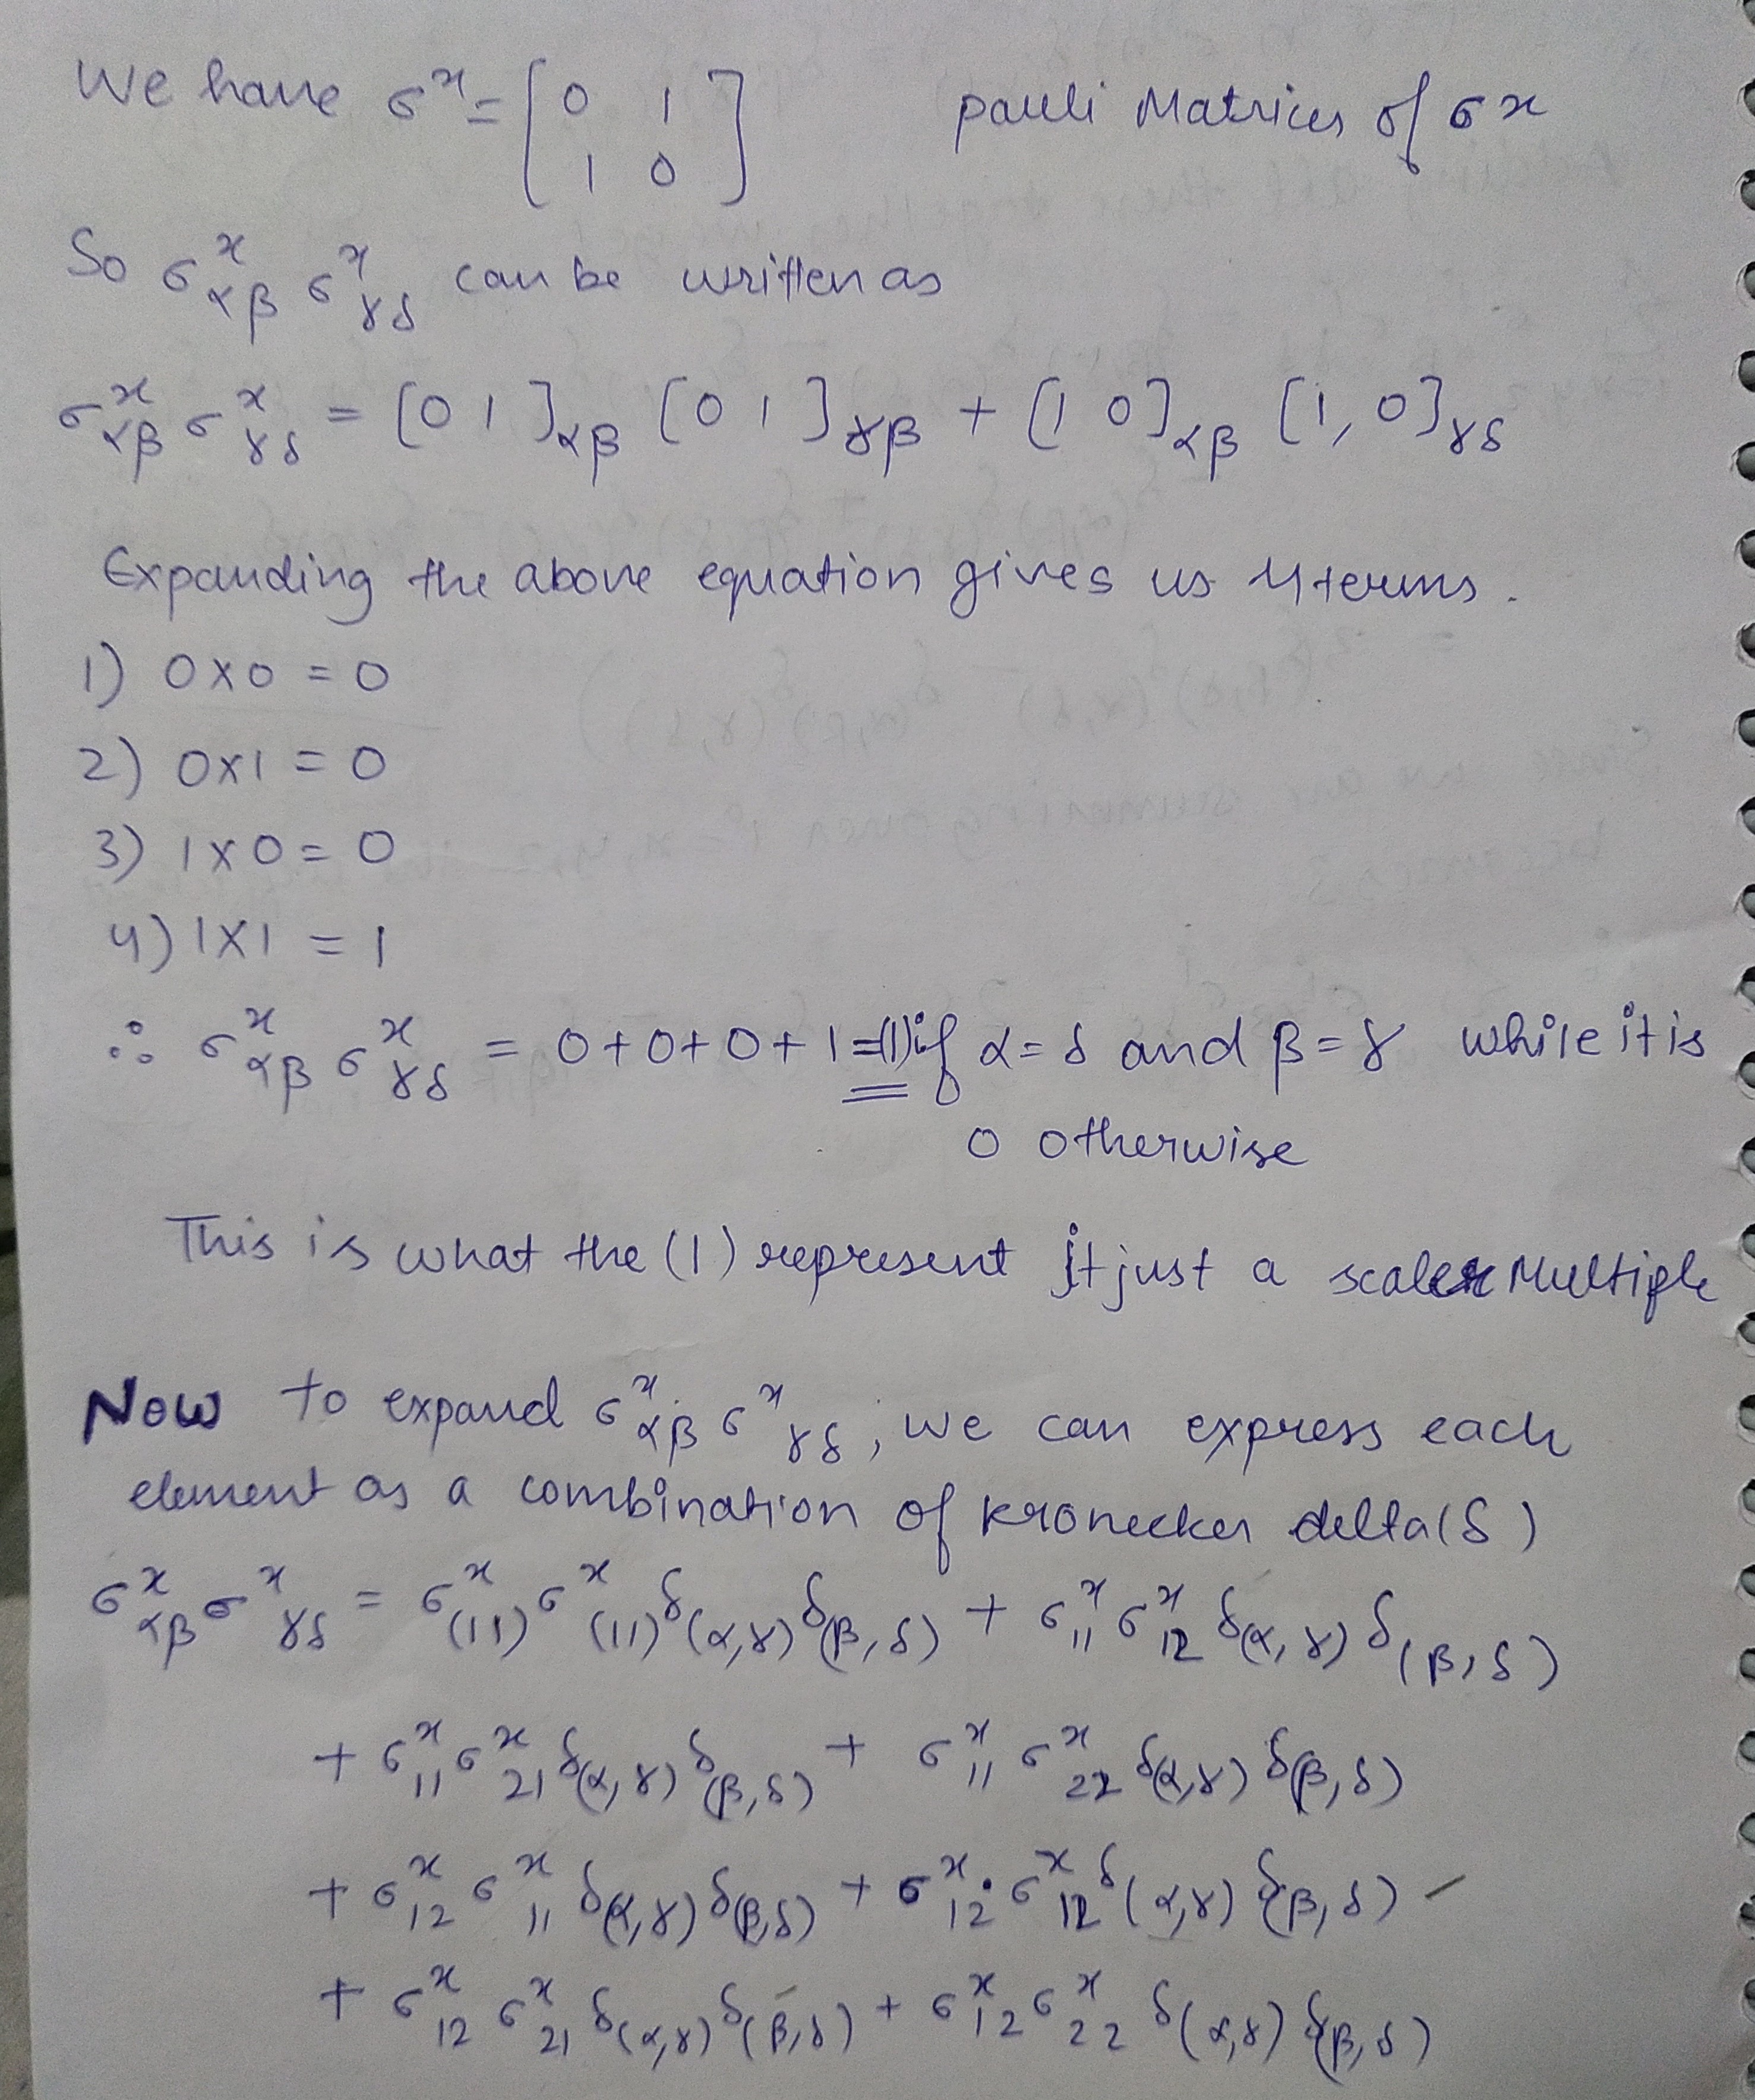 We have σˣ = [0 1
1 0] pauli Matrices of σx
So σˣ_αβ σˣ_γδ can be written as
σˣ_αβ σˣ_γδ = [0 1]_αβ [0 1]_γβ + [1 0]_αβ [1, 0]_γδ
Expanding the above equation gives us 4 terms.
1) 0x0 = 0
2) 0x1 = 0
3) 1x0 = 0
4) 1x1 = 1
∴ σˣ_αβ σˣ_γδ = 0+0+0+1=(1) if α=δ and β=γ while it is
0 otherwise
This is what the (1) represent it just a scaler Multiple
Now to expand σˣ_αβ σˣ_γδ, we can express each
element as a combination of Kronecker delta(δ)
σˣ_αβ σˣ_γδ = σˣ_(11) σˣ_(11) δ_(α,γ) δ_(β,δ) + σˣ_11 σˣ_12 δ_(α,γ) δ_(β,δ)
+ σˣ_11 σˣ_21 δ_(α,γ) δ_(β,δ) + σˣ_11 σˣ_22 δ_(α,γ) δ_(β,δ)
+ σˣ_12 σˣ_11 δ_(α,γ) δ_(β,δ) + σˣ_12 · σˣ_12 δ_(α,γ) δ_(β,δ)
+ σˣ_12 σˣ_21 δ_(α,γ) δ_(β,δ) + σˣ_12 σˣ_22 δ_(α,γ) δ_(β,δ)